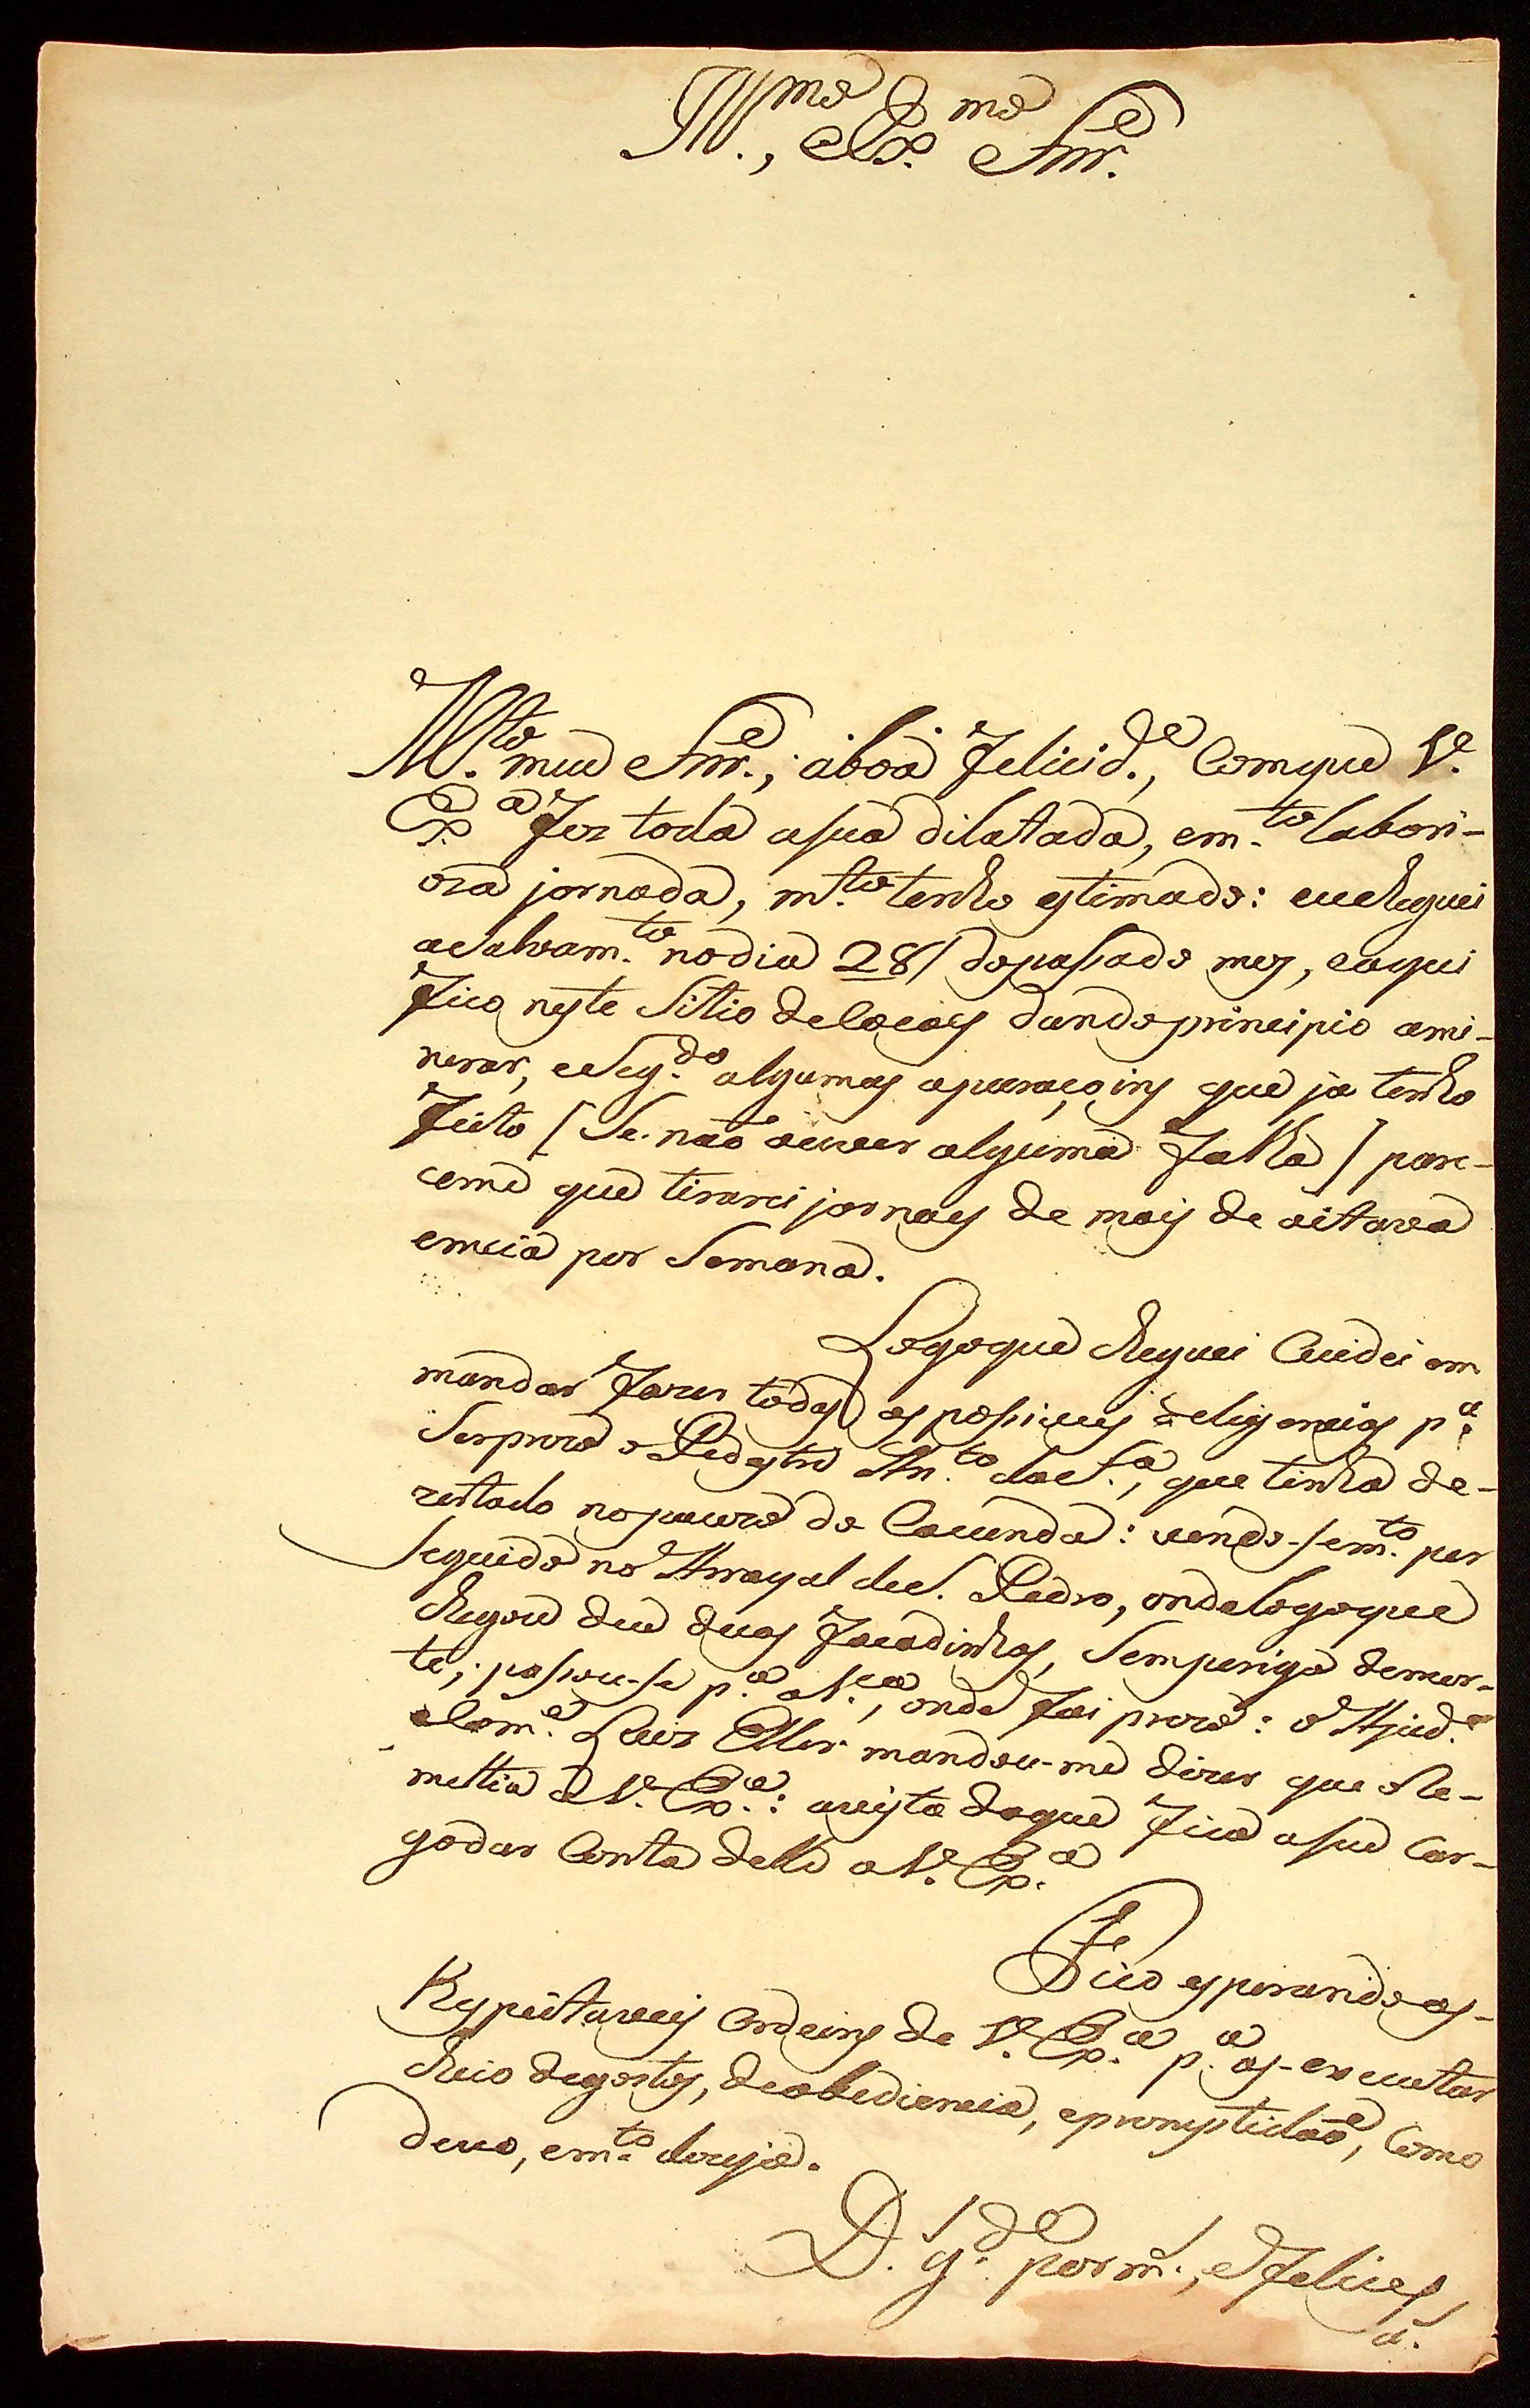 Ill.mo, e Ex.mo Snr.
M.to meu Snr.; aboa Felicid.e, Comque V.
Ex.a Fez toda asua dilatada, em.to labori-
oza jornada, m.to tenho estimado: eucheguei
aSalvam.to nodia 28/ dopassado mez, eaqui
Fico neste Sitio deCocaes dandoprincipio ami-
nerar, eSeg.do algumas apuraçoins que ja tenho
Feito [Se não ouver alguma Falha] pare-
ceme que tirarei jornaes de mais de oitava
emeia por Semana.
Logoque cheguei Cuidei em
mandar Fazer todas as possiveis deligencias p.a
Serprezo o Pedestre An.to daC.a, que tinha de-
zertado nopouzo do Cocunda: vendo-se m.to per
seguido no Arrayal deS. Pedro, ondelogoque
chegou deu duas Facadinhas, Semperigo demor-
te; passou-se p.a aV.a, onde Foi prezo: o Ajud.e
eCom.e Luiz Eller mandou-me dizer que oRe-
mettia a V. Ex.a: avista doque Fica aseu Car-
godar Conta delle aV. Ex.a
Fico esperandoas-
Respeitaveis Ordeins de V. Ex.a p.a as-executar
cheio degostos, deobediencia, epromptidão, Como
devo, em.to dezejo.
D.s g.de porm.s, eFelices
a.